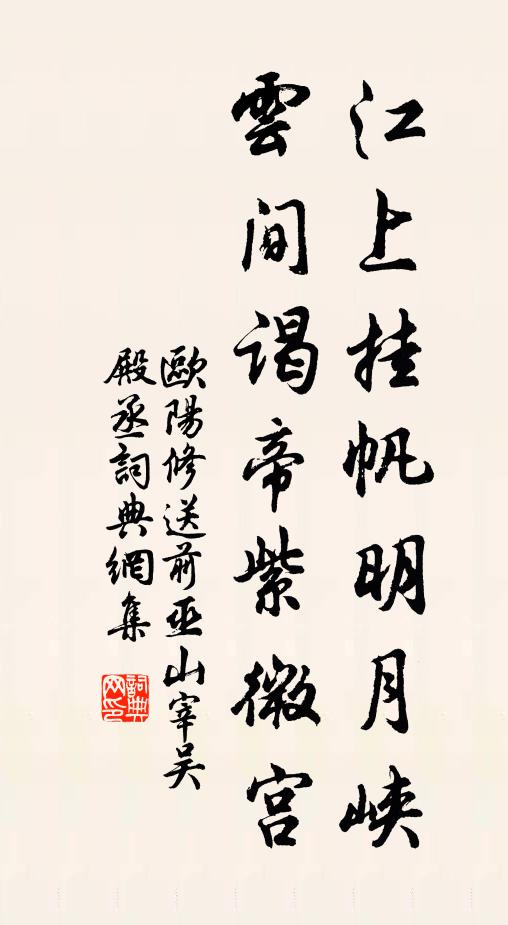 江上挂帆明月峡
雲間謁帝紫微宫
歐陽修送前巫山宰吴
殿丞詞典網集
詞典网印